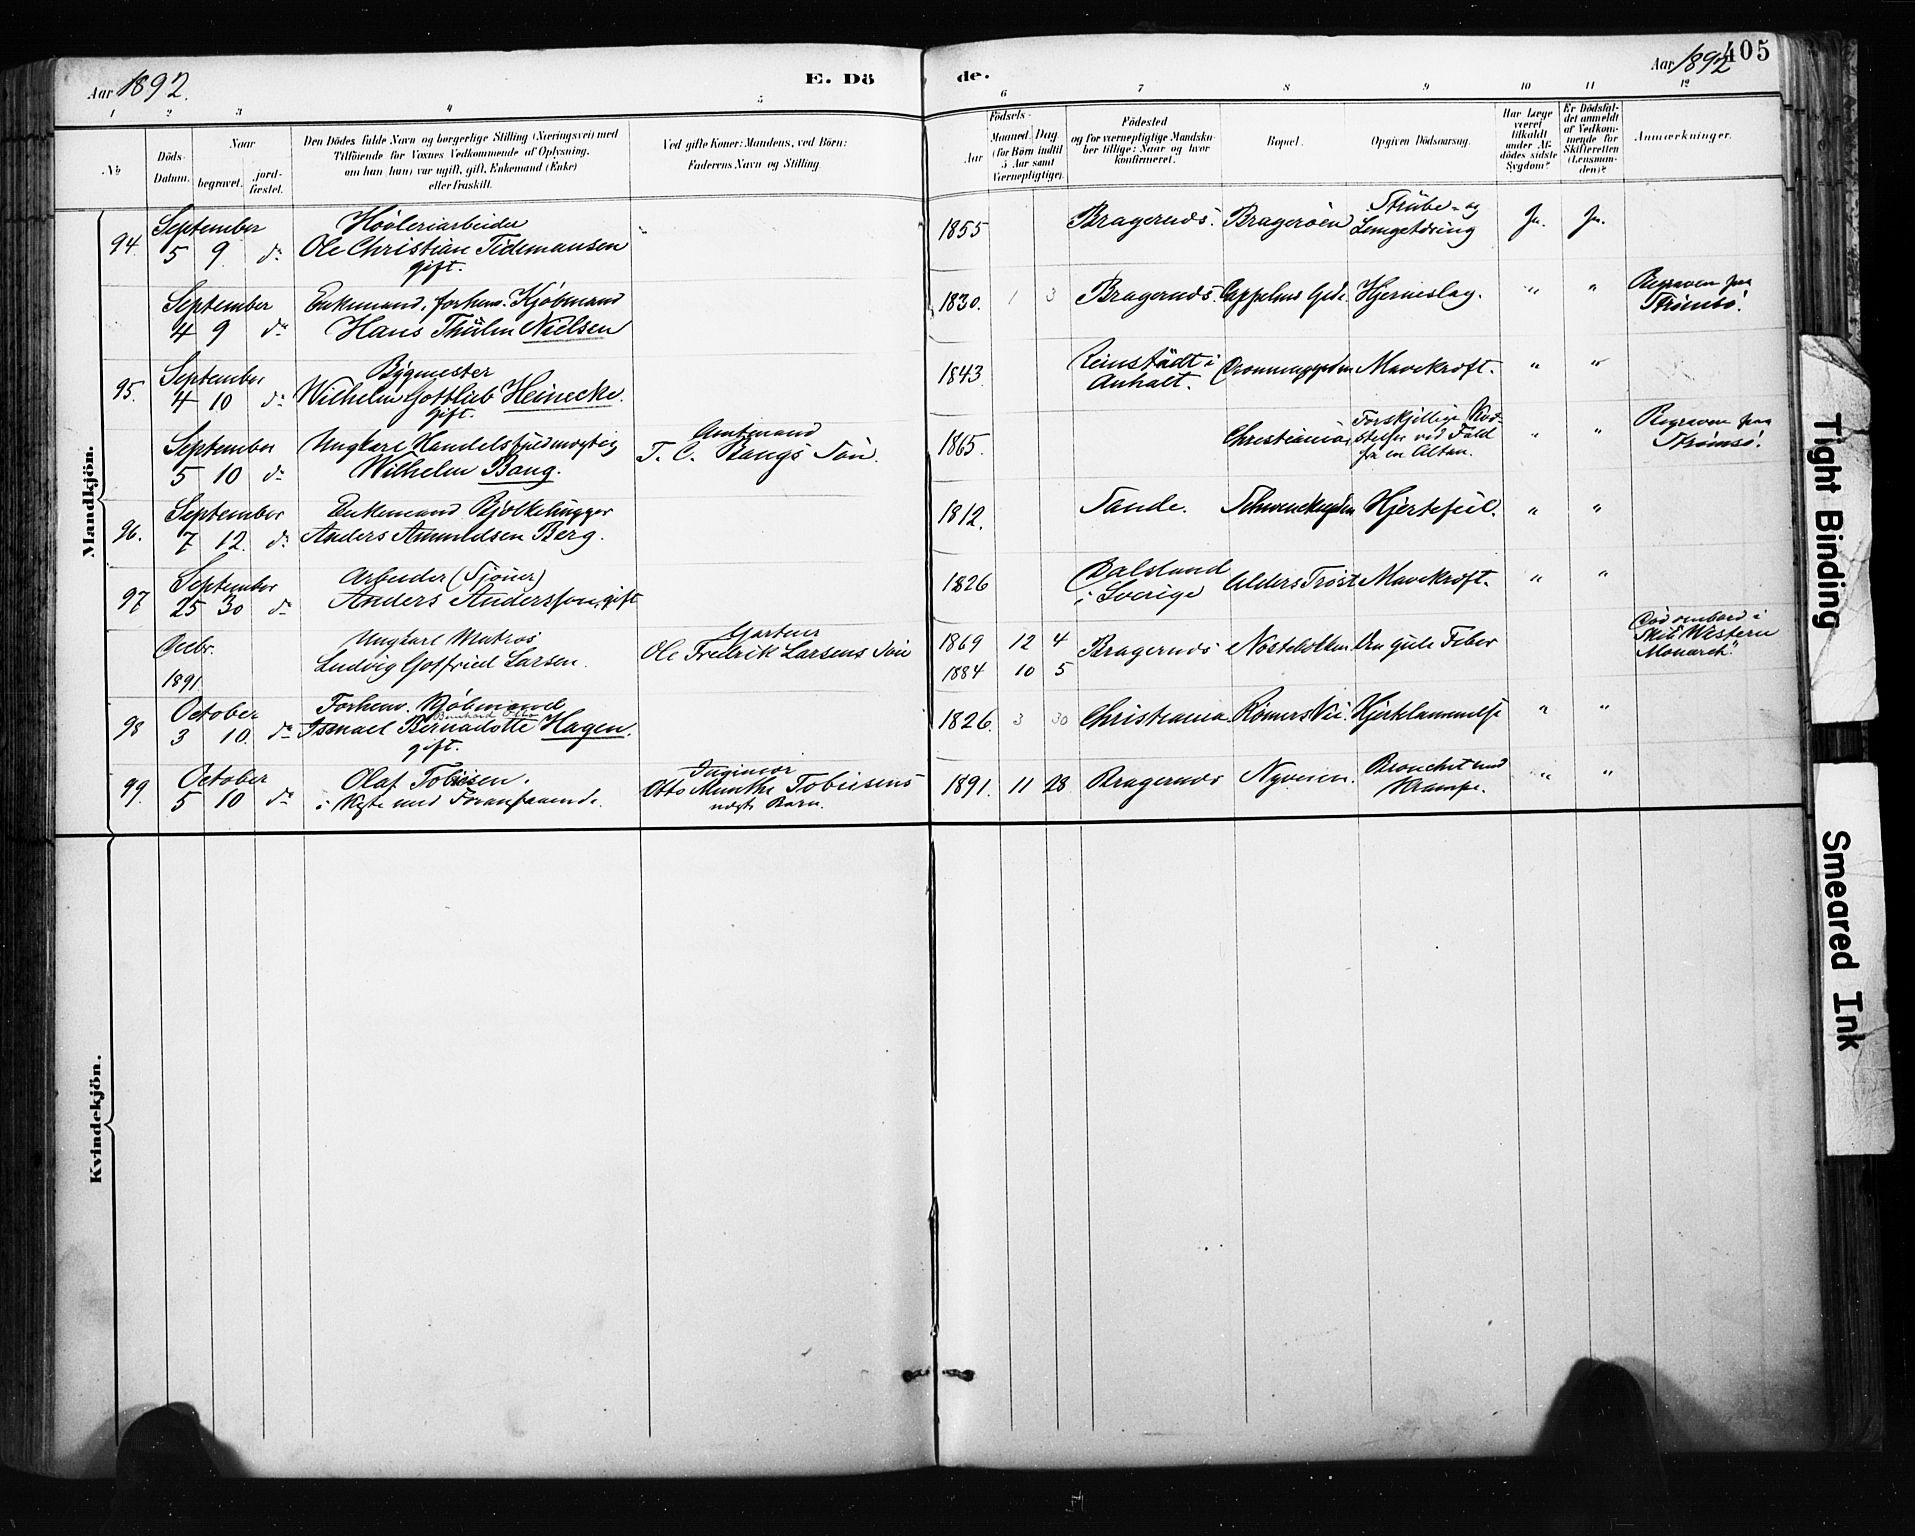 Aar 1892.
E. Dö
de.
Aar 1892
405
1 2 3 4 5 6 7 8 9 10 11 12
No
Döds-
Datum.
Naar
begravet.
jord-
fæstet.
Den Dödes fulde Navn og borgerlige Stilling (Næringsvei) med
Tilföiende for Voxnes Vedkommende af Oplysning,
om han (hun) var ugift, gift, Enkemand (Enke)
eller fraskilt.
Ved gifte Koner: Mandens, ved Börn:
Faderens Navn og Stilling.
Födsels-
Aar
Maaned Dag
(for Börn indtil
5 Aar samt
Værnepligtige).
Födested
og for værnepligtige Mandskaber tillige: Naar og hvor
konfirmeret.
Bopæl.
Opgiven Dödsaarsag.
Har Læge
været
tilkaldt
under Afdödes sidste
Sygdom?
Er Dödsfaldet anmeldt
af Vedkommende for
Skifteretten
(Lensmanden)?
Anmærkninger.
Mandkjön.
94. September 5 9 do
Hövleriarbeider
Ole Christian Tidemansen
gift.
"
1855 Bragernæs. Bragerøen Strube- og
Ja. Ja.
September 4 9 do
Enkemand, forhenv. Kjøbmand
Hans Thulin Nielsen
1830. 1 3 Bragernæs. Cappelens Gde. Hjerneslag. " " Begraven paa
Strømsø.
95. September 4 10 do
Bygmester
Wilhelm Gottlieb Heinecke.
gift.
1843 i
Anhalt. Mavekræft. " "
September 5 10 do
Ungkarl Handelsfuldmægtig
Wilhelm Bang.
Amtmand
T. C. Bangs Søn.
1865. Christiania, Forskjellige Kvæ-
stelser ved Fald
fra en Altan. " " Begraven paa
Strømsø.
96. September 7 12. do
Enkemand Bjelkehugger
Anders Amundsen Berg.
1812. Sande. Schwenckegaden Hjertefeil. " "
97 September 25 30 do
Arbeider (Sjouer)
Anders Andersson, gift
1826 Dalsland
i Sverige Alders Trøst Mavekræft. " "
Decbr.
1891.
Ungkarl Matros
Ludvig Gotfried Larsen.
Gartner
Ole Fredrik Larsens Søn
1869 12 4
1884 10 5
Bragernæs Den gule Feber Død ombord i
Skib "Western
Monarch".
98 October 3 10. do
Forhenv. Kjøbmand
Bernhard
Ismael Bernadotte Hagen.
gift.
1826. 3 30 Christiania. Rømers Vei. Hjertelammelse " "
99. October 5 10 do
Olaf Tobiesen.
i Ægte med Foranstaaende.
Ingeniør
Otto Munthe Tobiesens
Barn.
1891. 11 28 Bragernæs Nyveien. Bronchit med
Krampe. " "
Kvindekjön.
Tight Binding
Smeared Ink